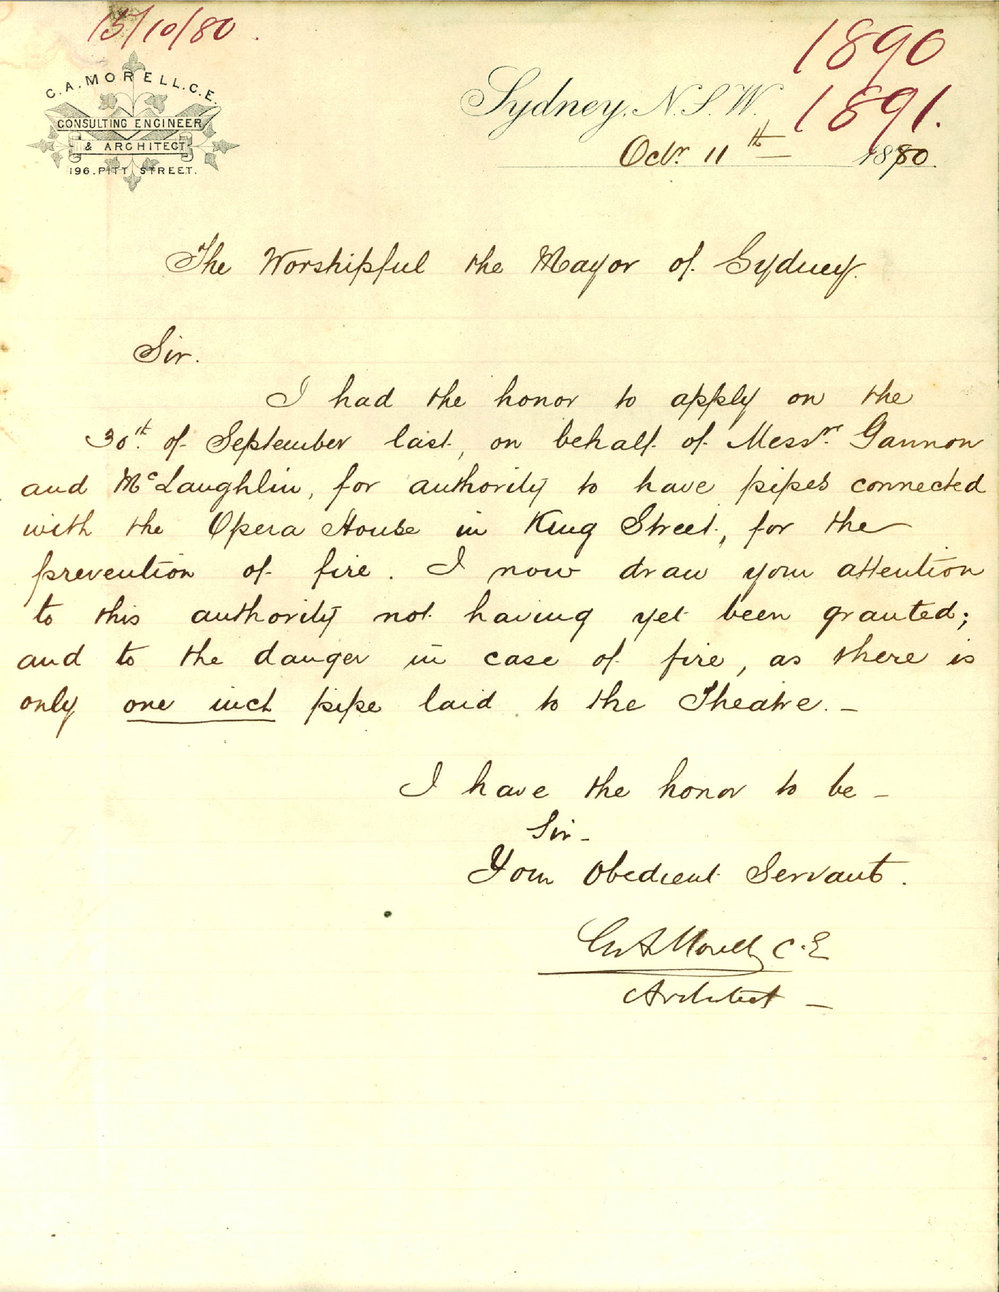 15/10/80.
1890
1891.
C. A. MORELL. C. E.
CONSULTING ENGINEER
& ARCHITECT
196. PITT STREET.
Sydney. N. S. W.
Octr. 11th 1880.
The Worshipful the Mayor of Sydney.
Sir.
I had the honor to apply on the
30th. of September last, on behalf of Messrs. Gannon
and McLaughlin, for authority to have pipes connected
with the Opera House in King Street, for the
prevention of fire. I now draw your attention
to this authority not having yet been granted;
and to the danger in case of fire, as there is
only one inch pipe laid to the Theatre. –
I have the honor to be –
Sir –
Your Obedient Servant.
Morell C. E
Architect –